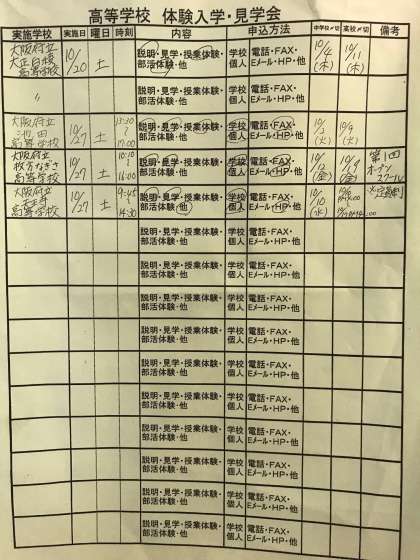 高等学校 体験入学・見学会
実施学校 実施日 曜日 時刻 内容 申込方法 中学校〆切 高校〆切 備考
大阪府立
大正白稜
高等学校
10/20 土
説明・見学・授業体験・
部活体験・他
学校
個人
電話・FAX・
Eメール・HP・他
10/4
(木)
10/11
(木)
〃
説明・見学・授業体験・
部活体験・他
学校
個人
電話・FAX・
Eメール・HP・他
大阪府立
池田
高等学校
10/27 土
13:30
17:00
説明・見学・授業体験・
部活体験・他
学校
個人
電話・FAX・
Eメール・HP・他
10/2
(火)
10/9
(火)
大阪府立
枚方なぎさ
高等学校
10/27 土
10:10
16:00
説明・見学・授業体験・
部活体験・他
学校
個人
電話・FAX・
Eメール・HP・他
(金)
(金)
第1回
オープン
スクール
大阪府立
高等学校
10/27 土
9:45
14:30
説明・見学・授業体験・
部活体験・他
学校
個人
電話・FAX・
Eメール・HP・他
10/10
(水)
説明・見学・授業体験・
部活体験・他
学校
個人
電話・FAX・
Eメール・HP・他
説明・見学・授業体験・
部活体験・他
学校
個人
電話・FAX・
Eメール・HP・他
説明・見学・授業体験・
部活体験・他
学校
個人
電話・FAX・
Eメール・HP・他
説明・見学・授業体験・
部活体験・他
学校
個人
電話・FAX・
Eメール・HP・他
説明・見学・授業体験・
部活体験・他
学校
個人
電話・FAX・
Eメール・HP・他
説明・見学・授業体験・
部活体験・他
学校
個人
電話・FAX・
Eメール・HP・他
説明・見学・授業体験・
部活体験・他
学校
個人
電話・FAX・
Eメール・HP・他
説明・見学・授業体験・
部活体験・他
学校
個人
電話・FAX・
Eメール・HP・他
説明・見学・授業体験・
部活体験・他
学校
個人
電話・FAX・
Eメール・HP・他
説明・見学・授業体験・
部活体験・他
学校
個人
電話・FAX・
Eメール・HP・他